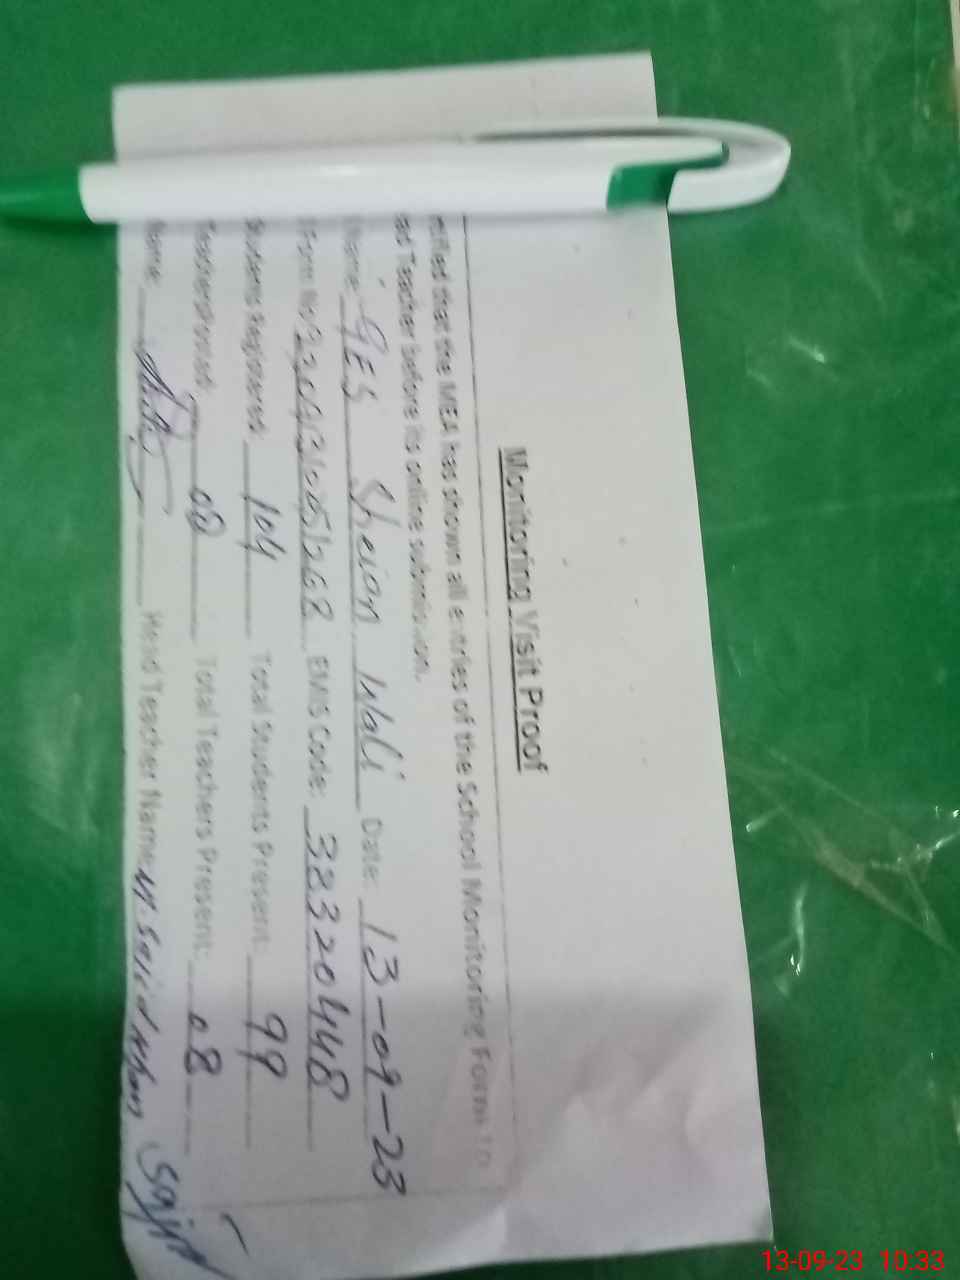 Monitoring Visit Proof
that the MEA has shown all entries of the School Monitoring Form to
Teacher before its online submission.
Name GES Sheian Wali Date: 13-09-23
Form No EMIS Code: 38320448
Students Registered: 104 Total Students Present: 99
Teachers Posted: 08 Total Teachers Present: 08
Name: Head Teacher Name: M. Sajid Khan Sajid
13-09-23 10.33